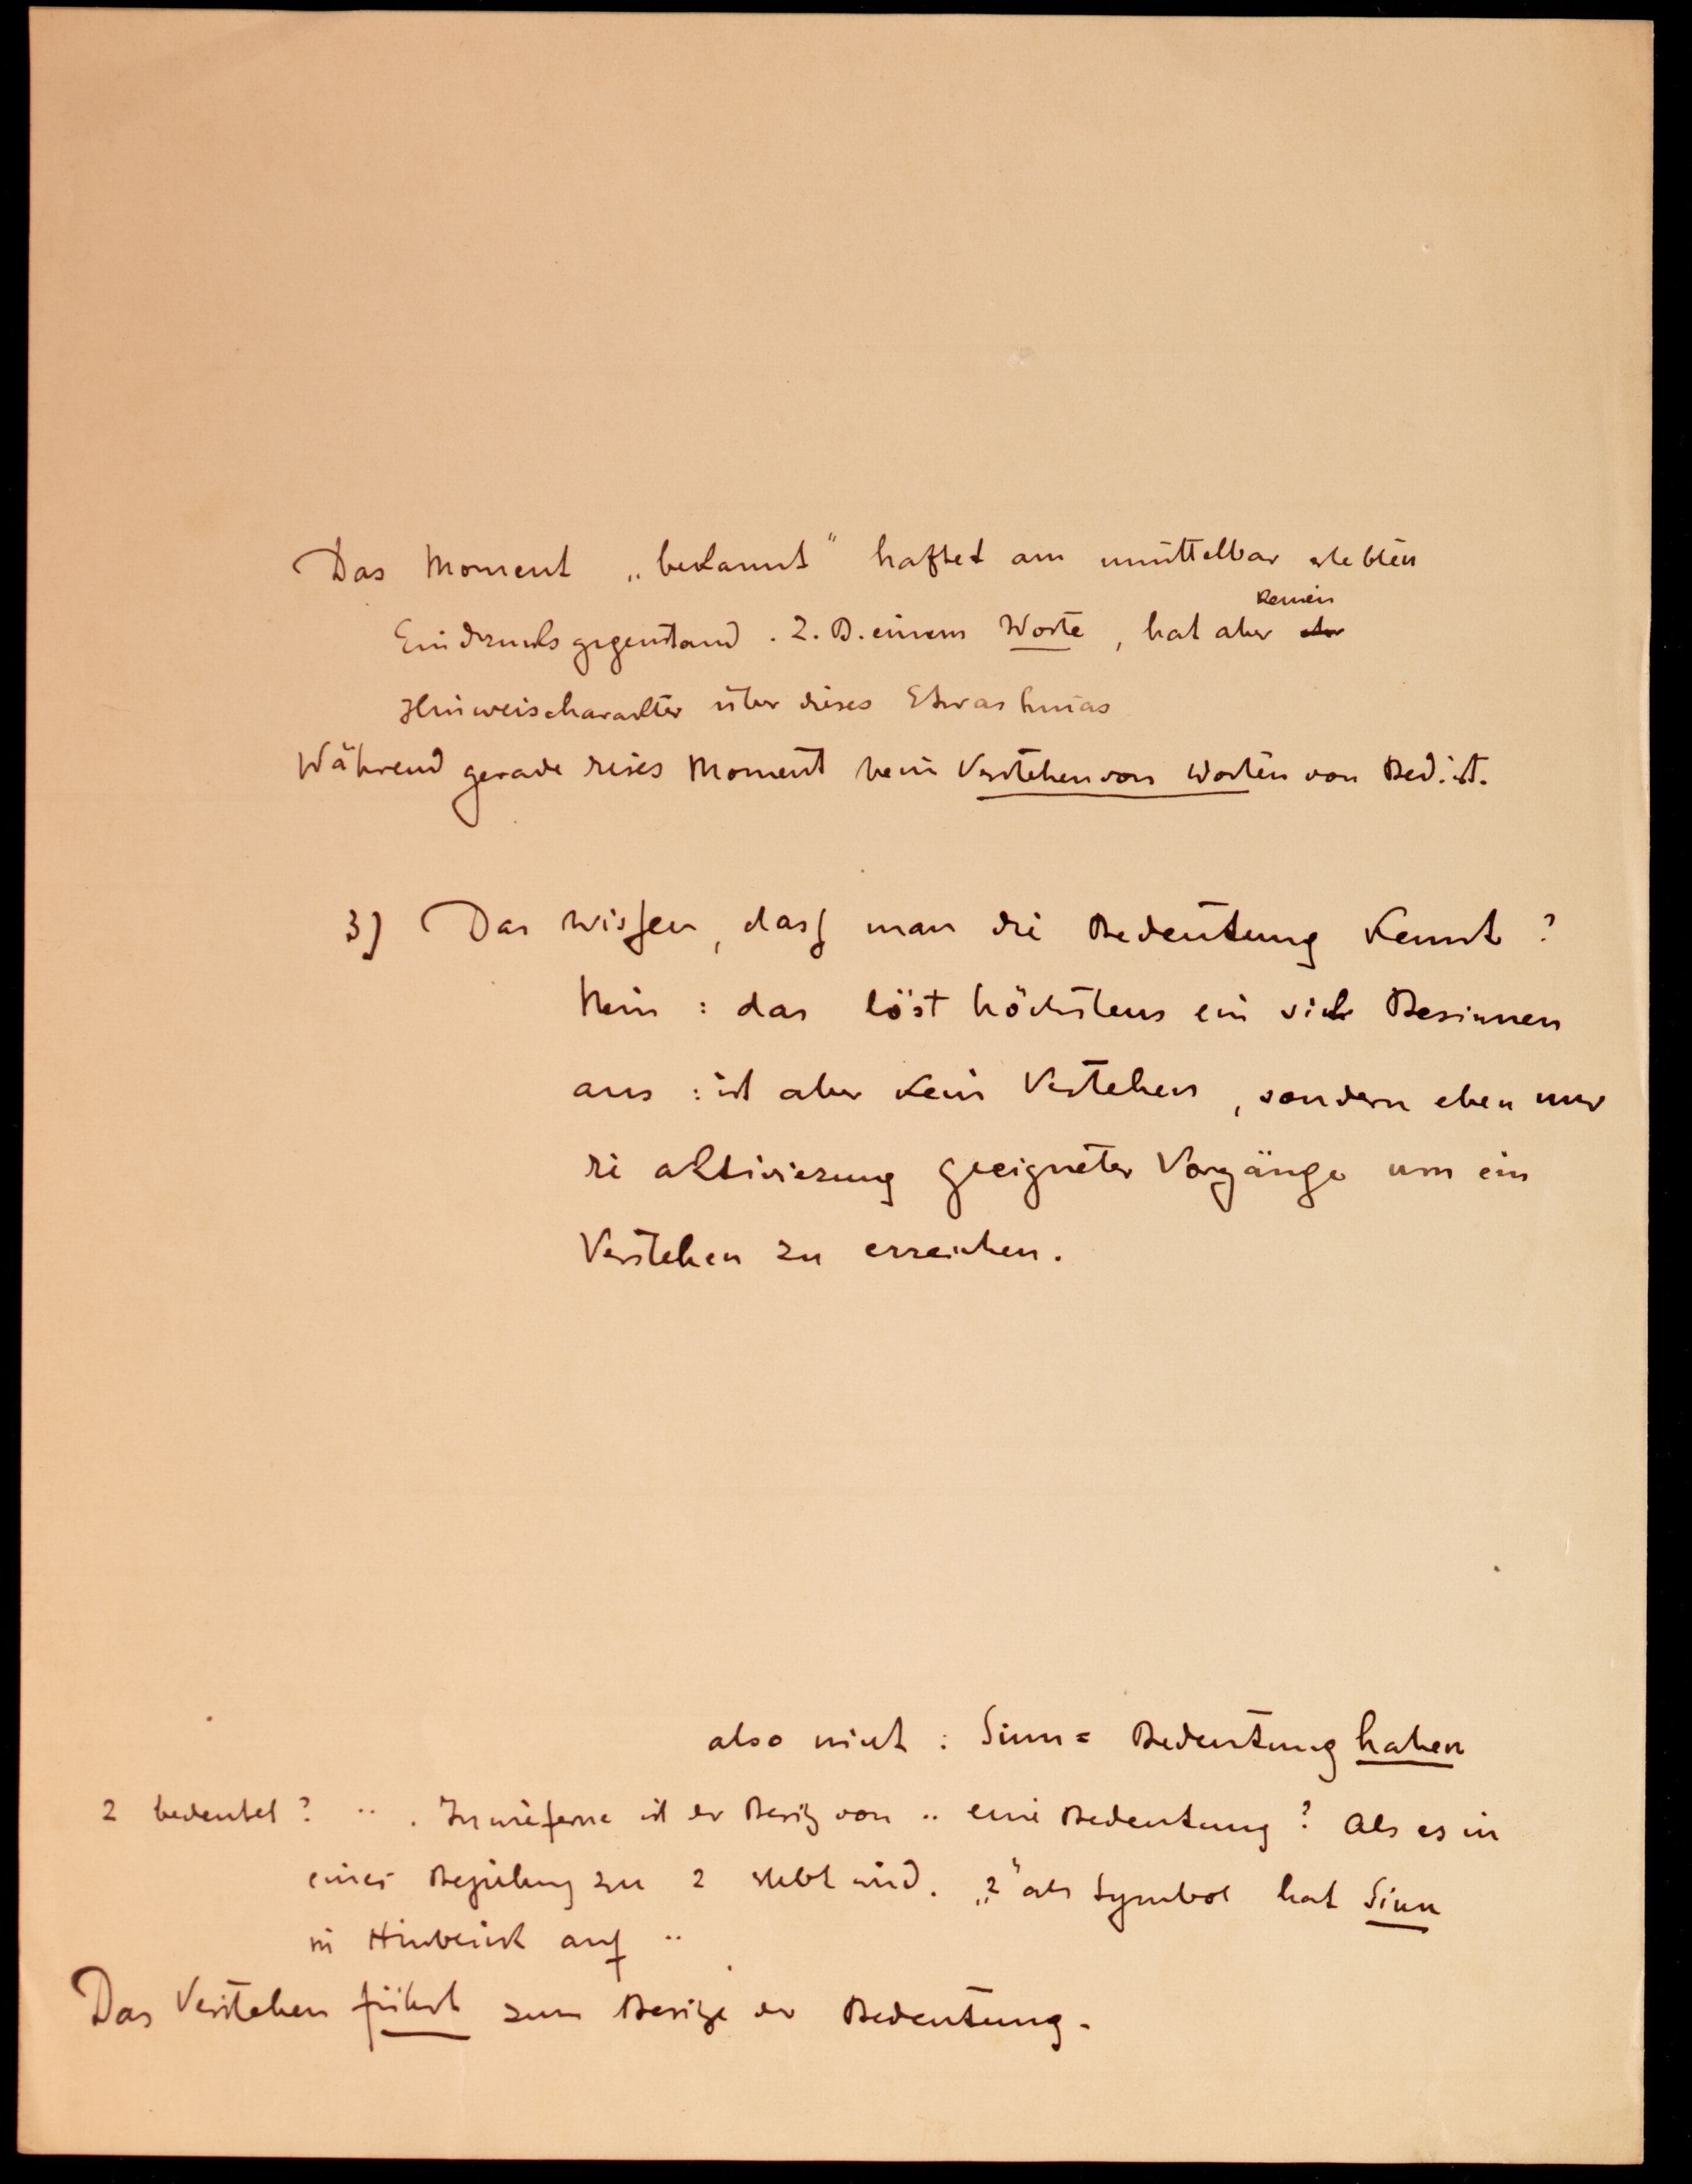 Das Moment „bekannt“ haftet am unmittelbar erlebten
keinen
Eindrucksgegenstand. Z. B. einem Worte, hat aber
Hinweischarakter über dieses Etwas hinaus
Während gerade dieses Moment beim Verstehen von Worten von Bed. ist.
3) Das wissen, dass man die Bedeutung kennt?
Nein: das löst höchstens ein sich Besinnen
aus: ist aber kein Verstehen, sondern eben nur
die aktivierung geeigneter Vorgänge um ein
Verstehen zu erreichen.
also nicht: Sinn = Bedeutung haben
2 bedeutet? ·· . Inwieferne ist der Besitz von ·· eine Bedeutung? Als es in
einer Beziehung zu 2 erlebt wird. „2“ als Symbol hat Sinn
in Hinblick auf ··
Das Verstehen führt zum Besitze der Bedeutung.